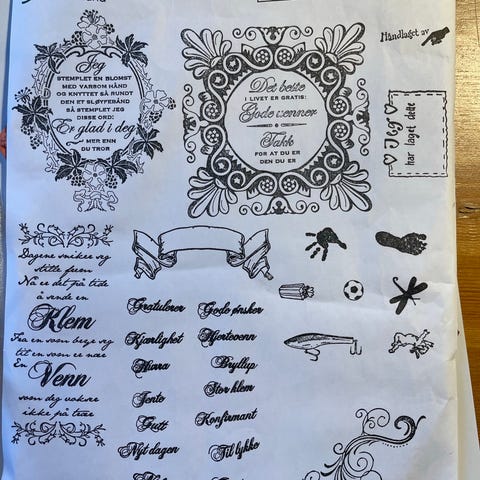 Jeg
STEMPLET EN BLOMST
MED VARSOM HÅND
OG KNYTTET SÅ RUNDT
DEN ET SLØYFEBÅND
SÅ STEMPLET JEG
DISSE ORD:
Er glad i deg
MER ENN
DU TROR
Det beste
I LIVET ER GRATIS:
Gode venner
Takk
FOR AT DU ER
DEN DU ER
Håndlaget av
Jeg
har laget dette
Dagene sniker seg
stille frem
Nå er det på tide
å sende en
Klem
Fra en som bryr seg
til en som er nær
En
Venn
som deg vokser
ikke på trær
Gratulerer
Kjærlighet
Hurra
Jente
Gutt
Nyt dagen
Gode ønsker
Hjertevenn
Bryllup
Stor klem
Konfirmant
Til lykke